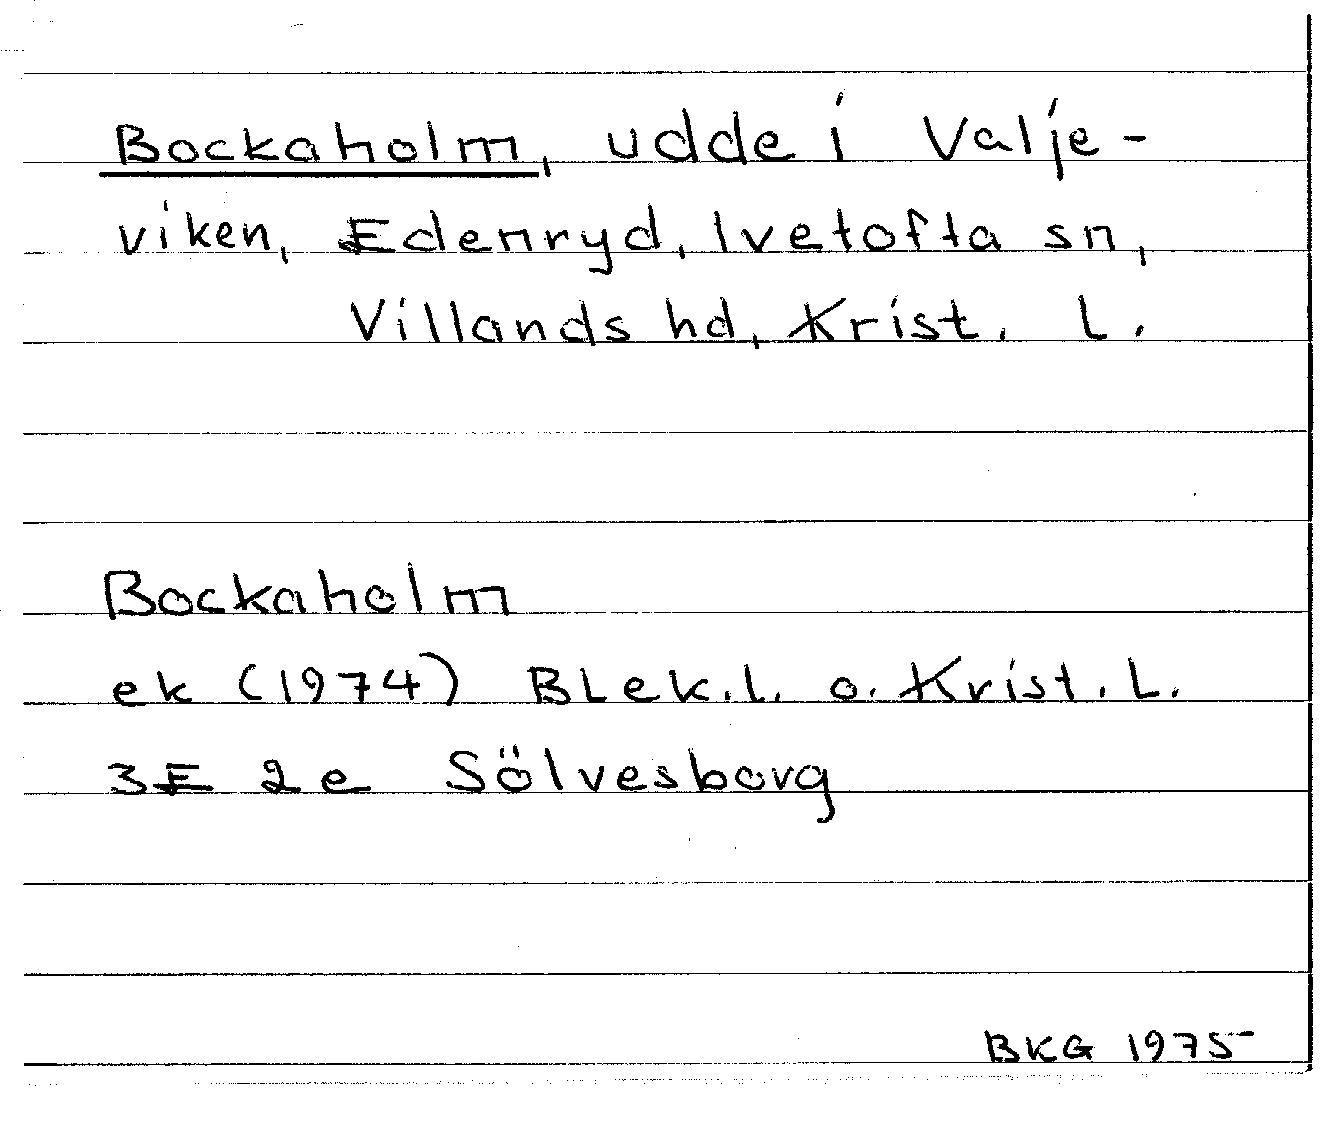 Bockaholm, udde i Valje-
viken, Edenryd, Ivetofta sn,
Villands hd, Krist. L.
Bockaholm
ek (1974) Blek.l. o. Krist. L.
3E 2e Sölvesborg
BKG 1975